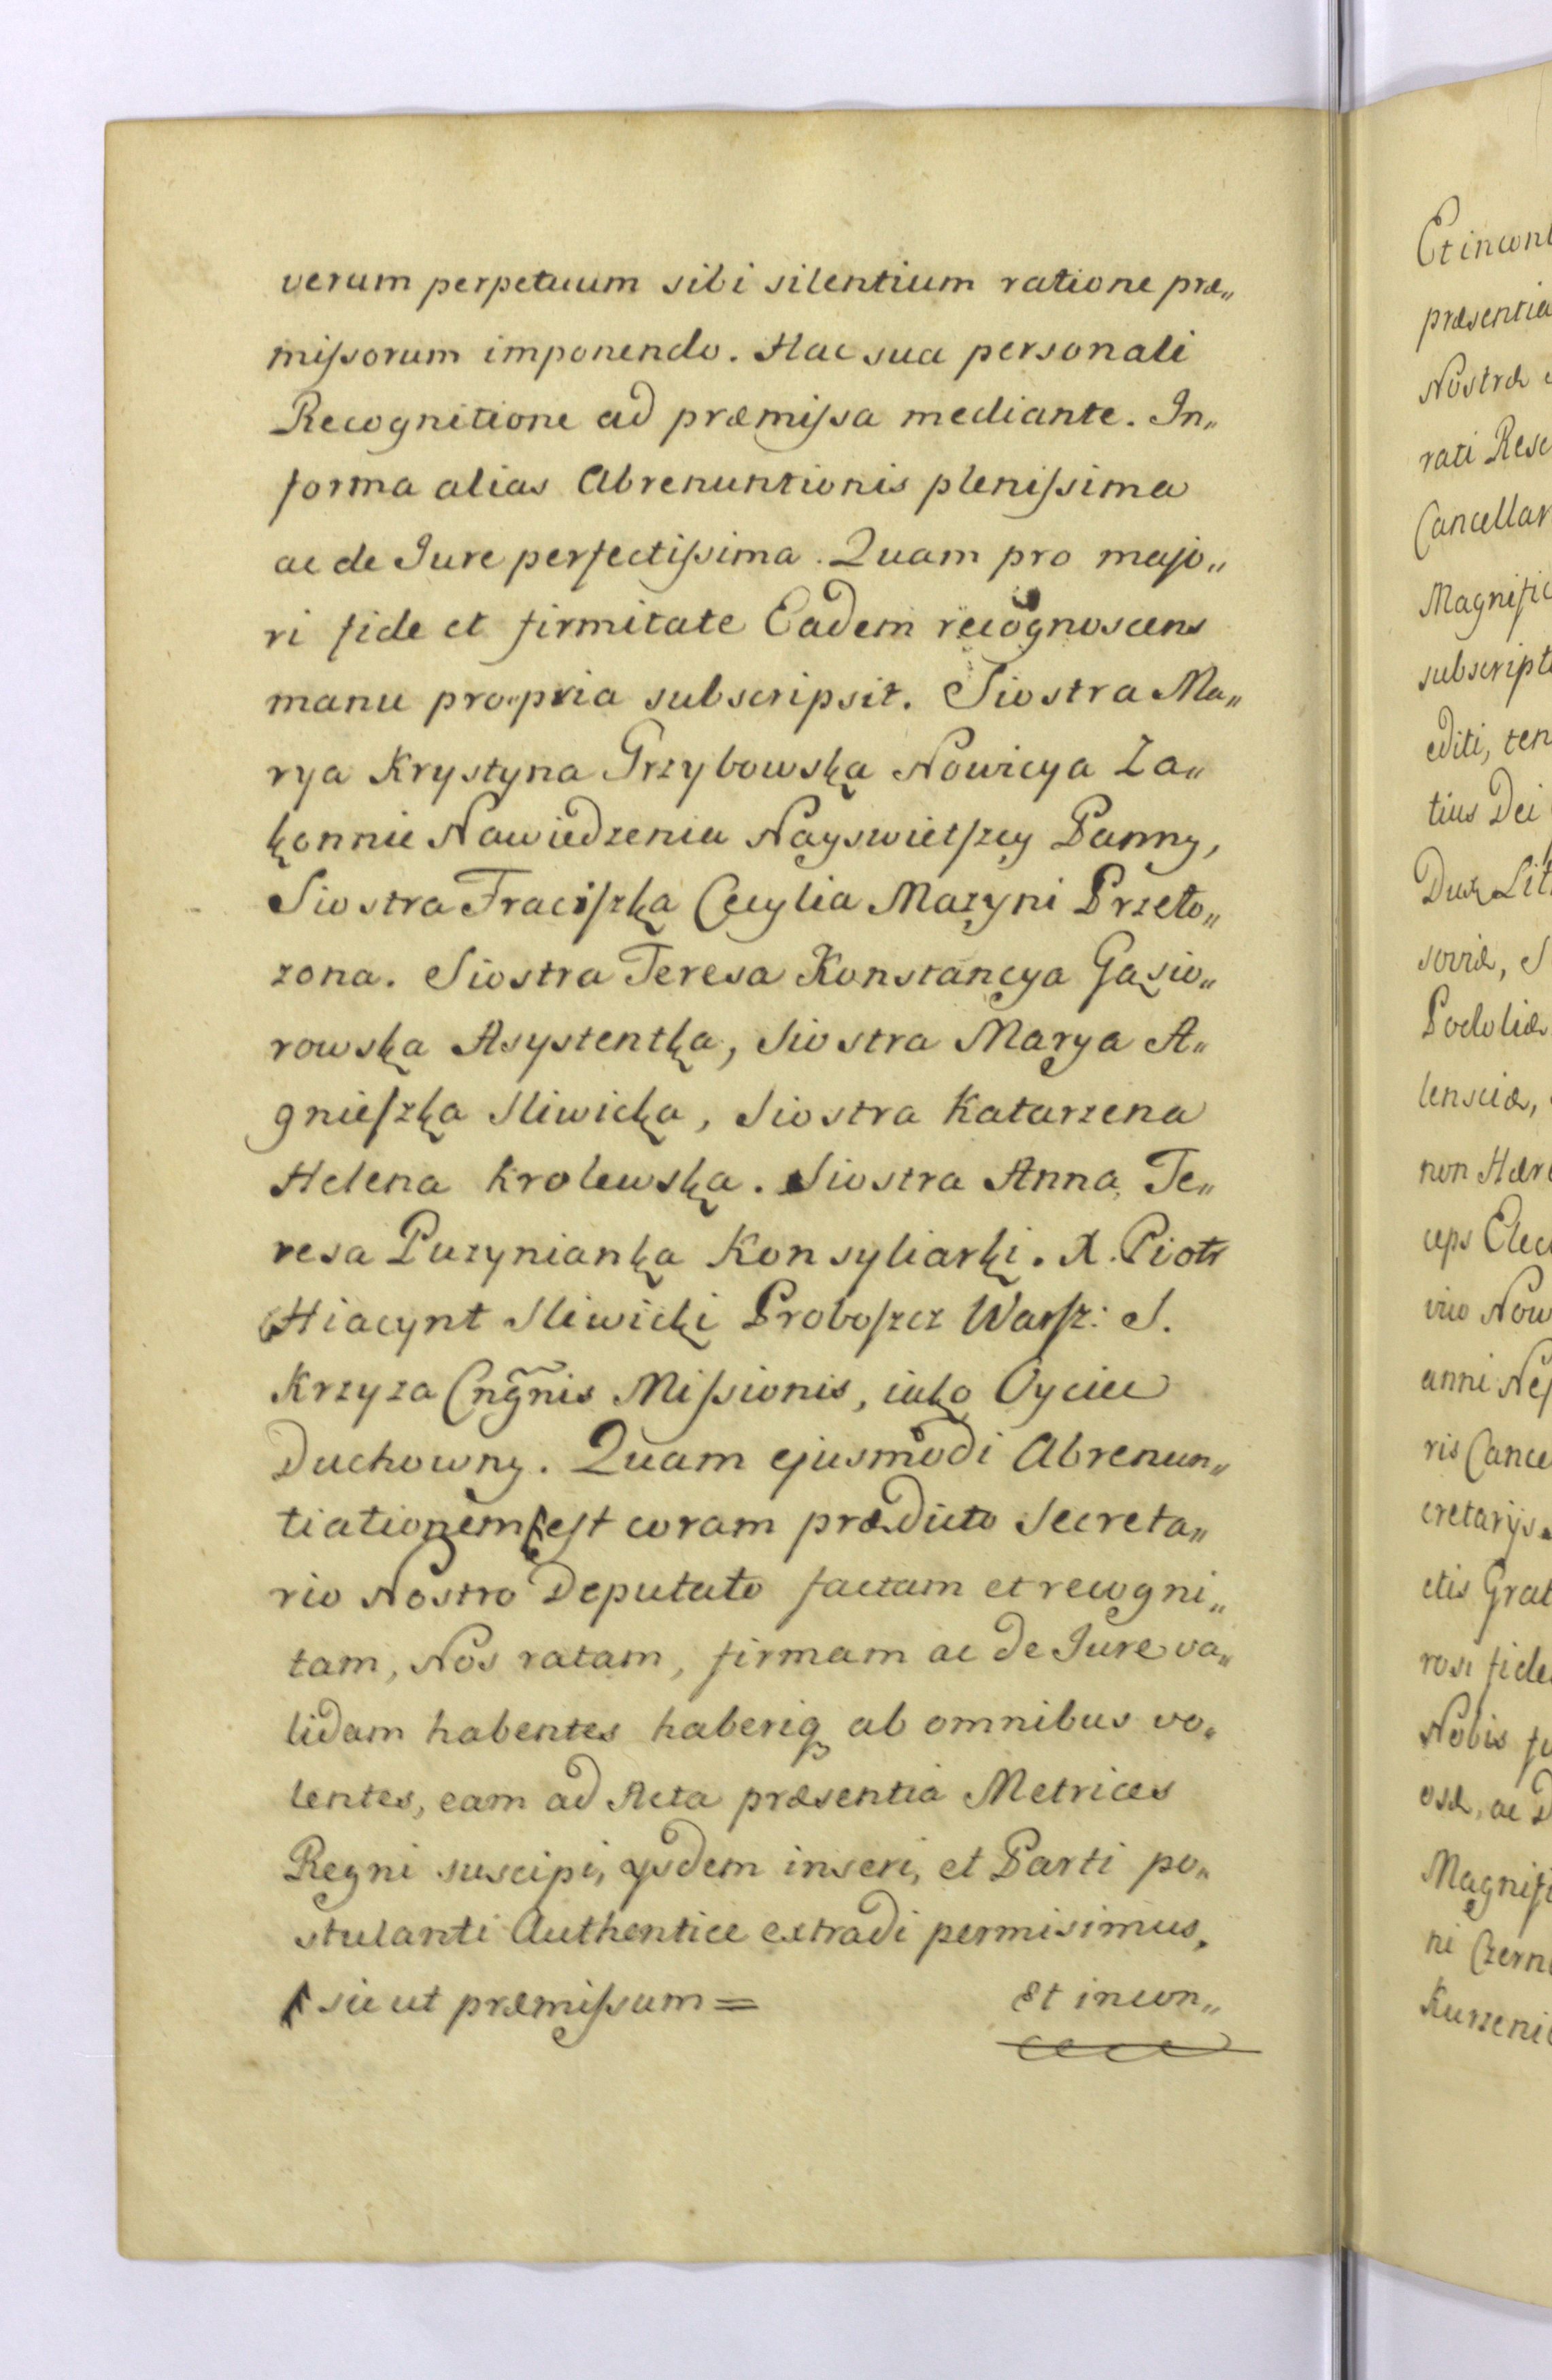 verum perpetuum sibi silentium ratione præ„
mißorum imponendo. Hac sua personali
Recognitione ad præmißa mediante. In„
forma alias Abrenuntionis plenißima
ac de Jure perfectißima. Quam pro majo„
ri fide et firmitate Eadem recognoscens
manu propria subscripsit. Siostra Ma„
rya Krystyna Grzybowska Nowicya Za„
konnie Nawiedzenia Nayswietszey Panny,
Siostra Traciszka Cecylia Mazyni Przeło„
zona. Siostra Teresa Konstancya Gasio„
rowska Asystentka, Siostra Marya A„
gnieszka Sliwicka, Siostra Katarzena
Helena Krolewska. Siostra Anna Te„
resa Puzynianka Konsyliarki. X. Piotr
Hiacynt Sliwicki Proboszcz Warsz: S.
Krzyza Cngnis Mißionis, iako Oyciec
Duchowny. Quam ejusmodi Abrenun„
tiationem est coram prædicto Secreta„
rio Nostro Deputato factam et recogni„
tam, Nos ratam, firmam ac de Jure va„
lidam habentes haberiq ab omnibus vo„
lentes, eam ad Acta præsentia Metrices
Regni suscipi, ijsdem inseri, et Parti po„
stulanti Authentice extradi permisimus.
sicut præmißum = Et incon„
Et incont
præsentia
Nostræ
rati Resc
Cancellar
Magnific
subscript
editi, ten
tius Dei
Dux Lit
soviæ, S
Podoliæ
lensciæ,
non Hær
ceps Elec
vio Now
anni Nep
ris Cance
cretarijs
ctis Grat
rosi fide
Nobis
osæ, ac D
Magnif
ni Czern
Kurzeni